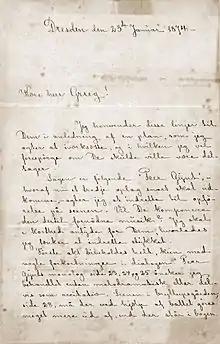 Dresden, den 23de Januar 1874.
Kære herr Grieg!
Jeg henvender disse linjer til
Dem i anledning af en plan, som jeg
agter at iværksætte, og i hvilken jeg vil
forespørge om De skulde ville være del-
tager.
Sagen er følgende. "Peer Gynt",
hvoraf nu et tredje oplag snart skal ud-
komme, agter jeg at indrette til opfø-
relse på scenen. Vil De komponere
den dertil fornødne musik? Jeg skal
i korthed antyde for Dem hvorledes
jeg tænker at indrette stykket.
Første akt bibeholdes helt, kun med
nogle forkortninger i dialogen. Peer
Gynts monolog side 23, 24 og 25 ønsker jeg
behandlet enten melodramatisk eller del-
vis som recitativ. Scenen i bryllupsgården,
side 28, må der ved hjælp af ballet gøres
meget mere ud af, end der står i bogen.